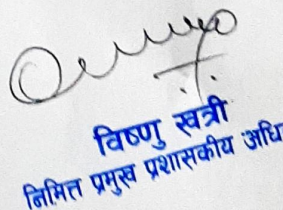 विष्णु खत्री
निमित्त प्रमुख प्रशासकीय अधि